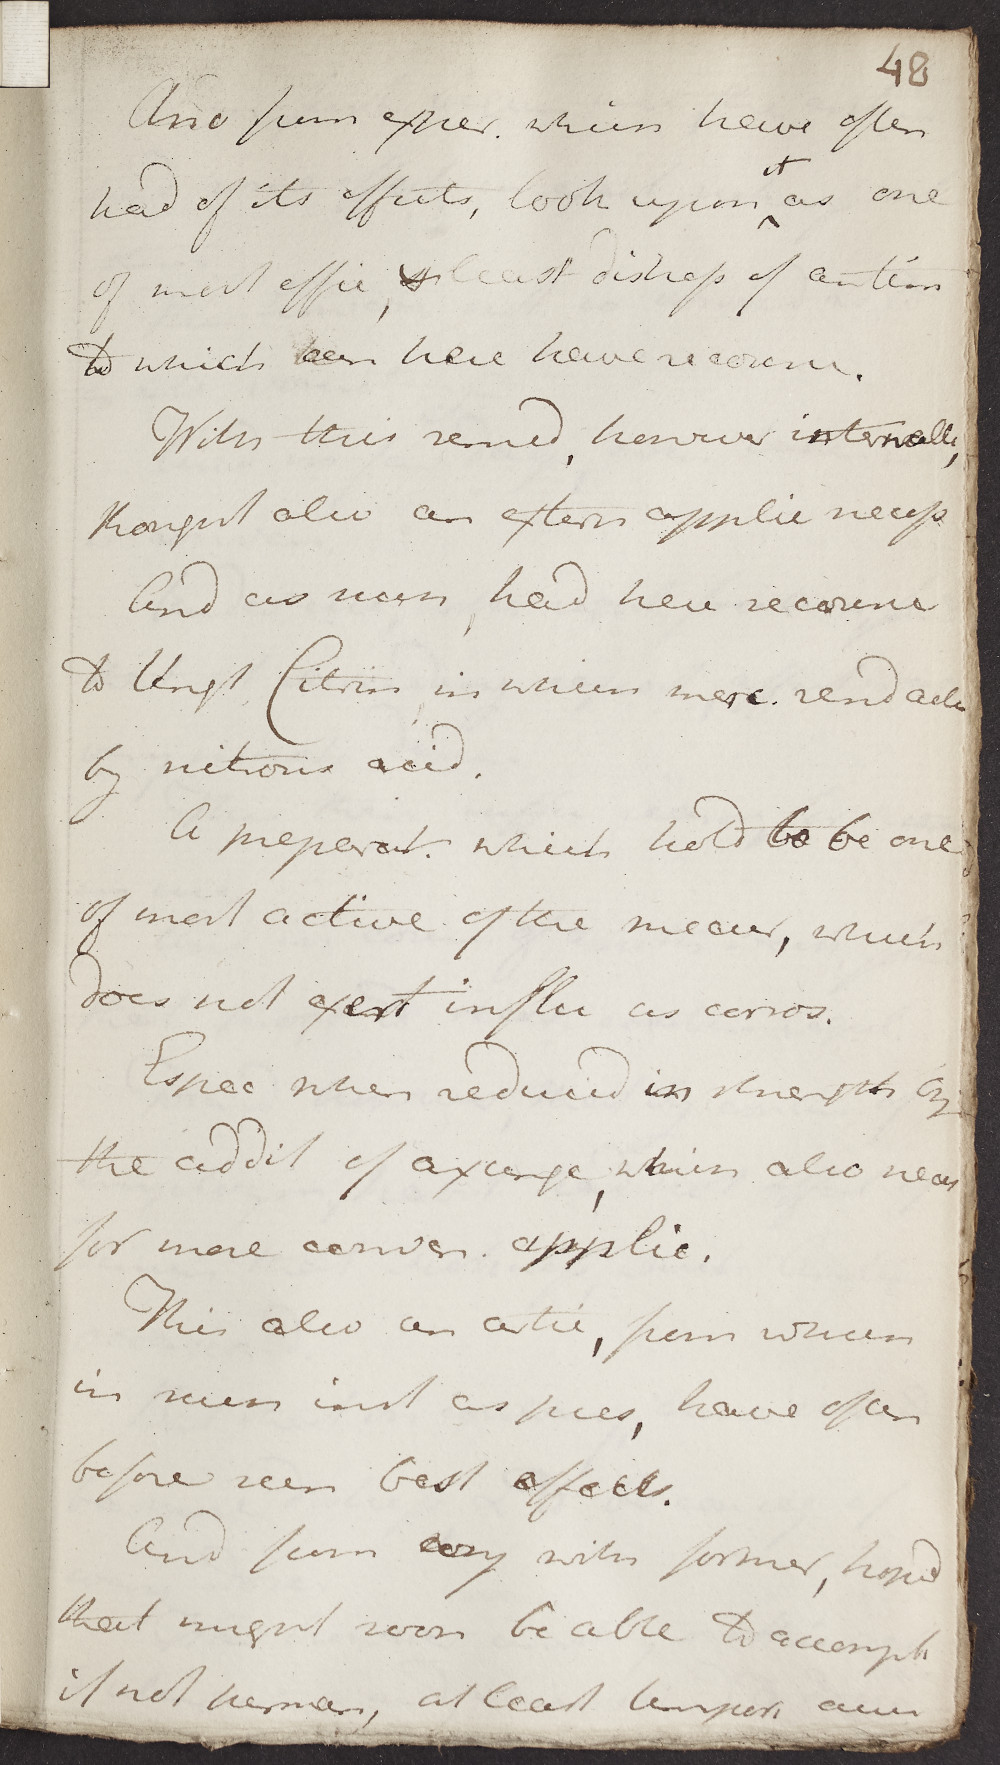 48
And from exper. which have often
had of its effects, look upon it as one
of most effic, & least distress of antim
to which can here have recourse.
With this remed, however internally,
thought also an extern applic necess
And as such, had here recourse
to Ungt Citrin, in which merc. rend act
by nitrous acid.
A preparat. which hold to be one
of most active of the mercur, which
does not exert influ as corros.
Espec when reduced in strength by
the addit of axunge, which also neces
for more conven. applic.
This also an artic, from which
in such inst as pres, have often
before seen best effects.
And from conj with former, hoped
that might soon be able to accompl
if not perman, at least tempor cure